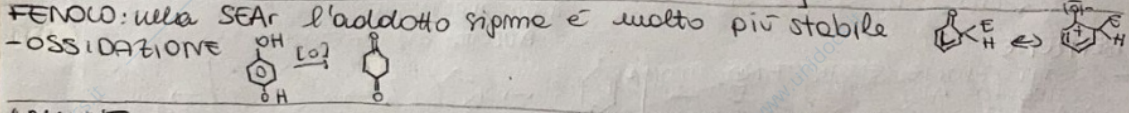 FENOLO: nella SEAr l'addotto sigma è molto più stabile
-OSSIDAZIONE OH [O] O
OH O